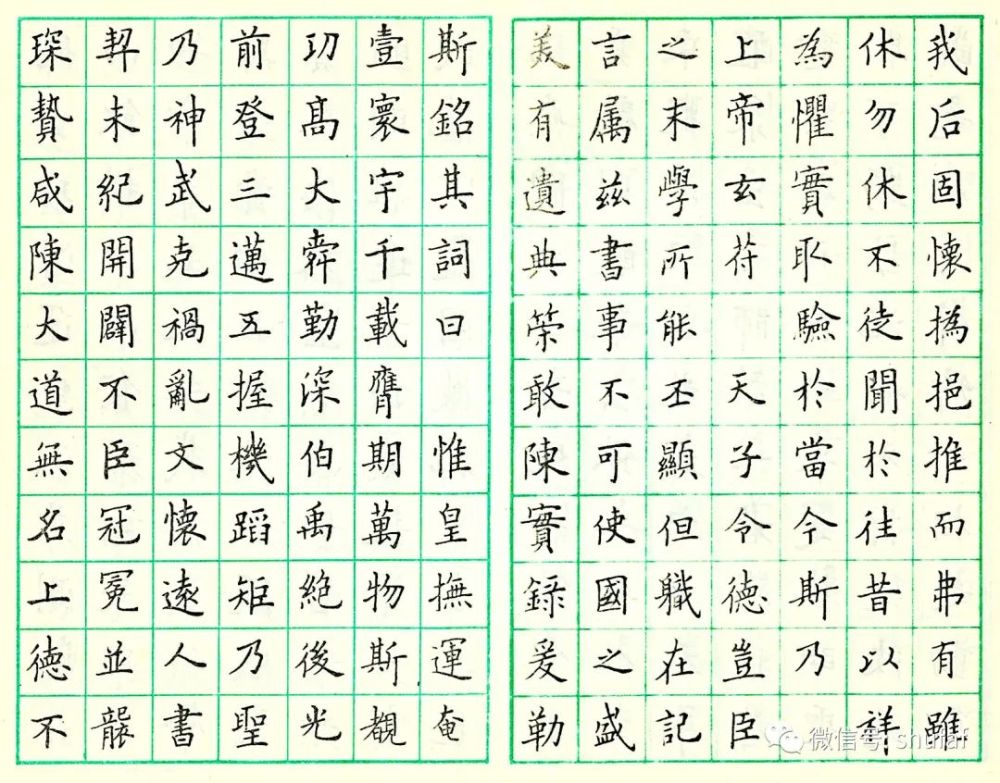 我后固懷撝挹推而弗有雖
休勿休不徒聞於往昔以祥
為懼實取驗於當今斯乃
上帝玄符天子令德豈臣
之末學所能丕顯但職在記
言属兹書事不可使國之盛
美有遺典策敢陳實錄爰勒
斯銘其詞曰惟皇撫運奄
壹寰宇千載膺期萬物斯覩
功高大舜勤深伯禹絶後光
前登三邁五握機蹈矩乃聖
乃神武克禍亂文懷遠人書
契未紀開闢不臣冠冕並襲
琛贄咸陳大道無名上德不
微信号: shufaf